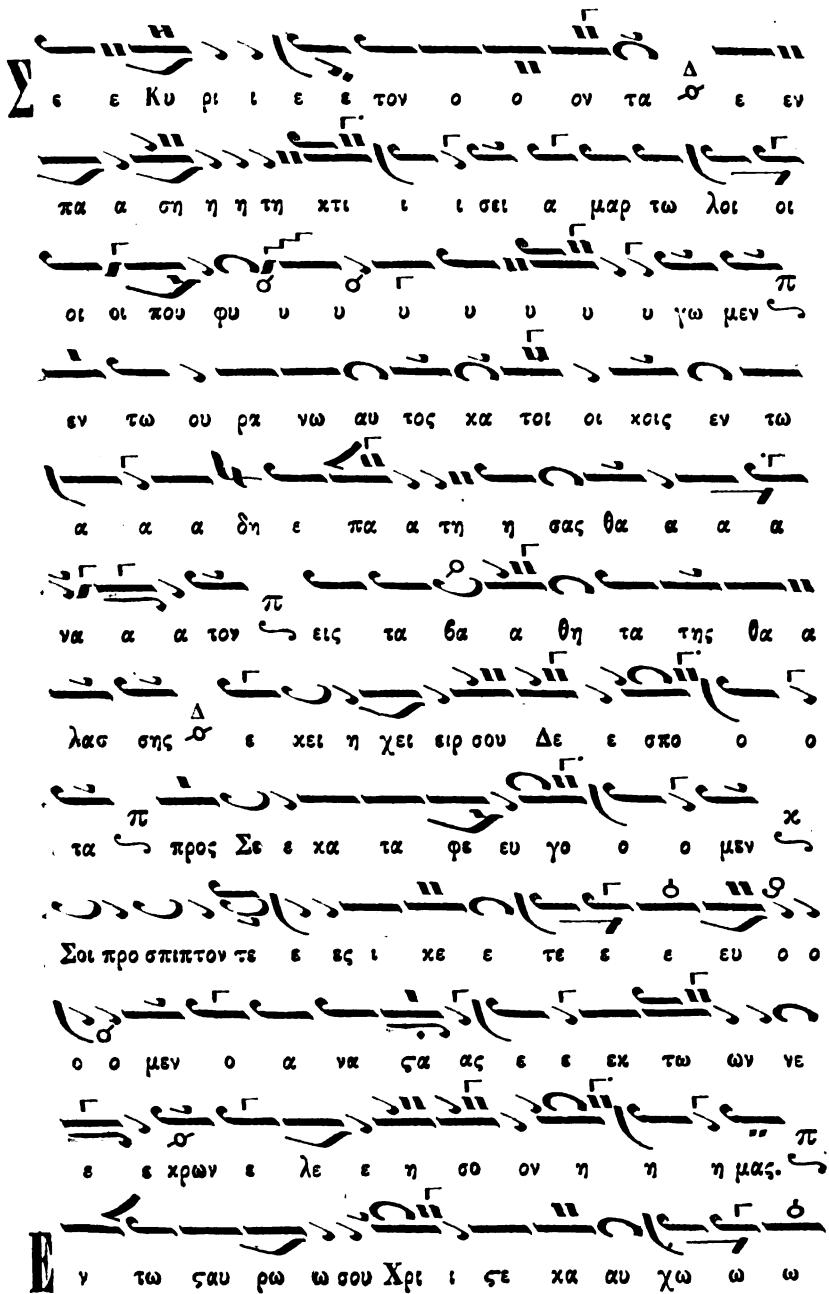 Σε ε Κυ ρι ι ε ε τον ο ο ον τα Δ ε εν
πα α ση η η τη κτι ι ι σει α μαρ τω λοι οι
οι οι που φυ υ υ υ υ υ υ υ γω μεν π
εν τω ου ρα νω αυ τος κα τοι οι κοις εν τω
α α α δη ε πα α τη η σας θα α α α
να α α τον π εις τα βα α θη τα της θα α
λασ σης Δ ε κει η χει ειρ σου Δε ε σπο ο ο
τα π προς Σε ε κα τα φε ευ γο ο ο μεν κ
Σοι προ σπιπτον τε ε ες ι κε ε τε ε ε ευ ο ο
ο ο μεν ο α να ϛα ας ε ε εκ τω ων νε
ε ε κρων ε λε ε η σο ον η η η μας. π
Εν τω ϛαυ ρω ω σου Χρι ι ϛε κα αυ χω ω ω